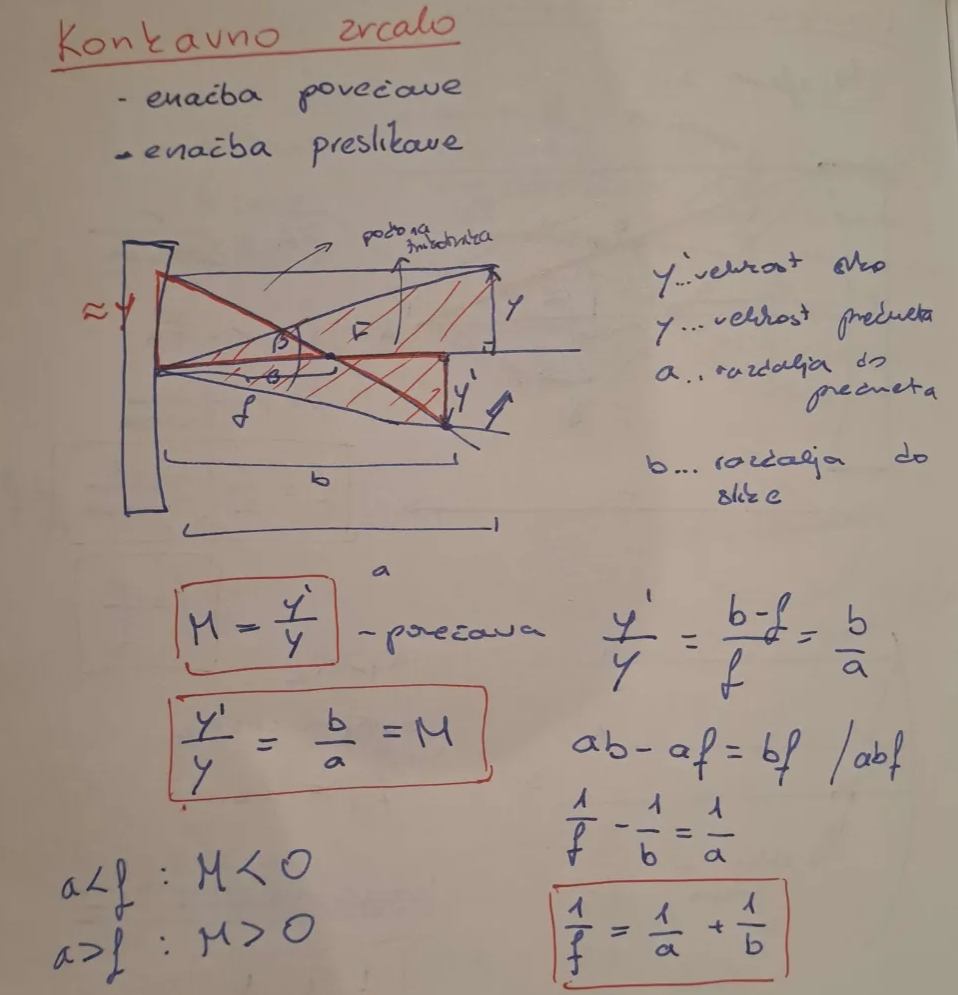 Konkavno zrcalo
- enačba povečave
- enačba preslikave
podobna
trikotnika
≈ y
β
β
F
f
y
y'
b
a
y'... velikost
y... velikost predmeta
a... razdalja do
predmeta
b... razdalja do
slike
M = y'/y - povečava
y'/y = b/a = M
a<f : M<0
a>f : M>0
y'/y = (b-f)/f = b/a
ab - af = bf /abf
1/f - 1/b = 1/a
1/f = 1/a + 1/b